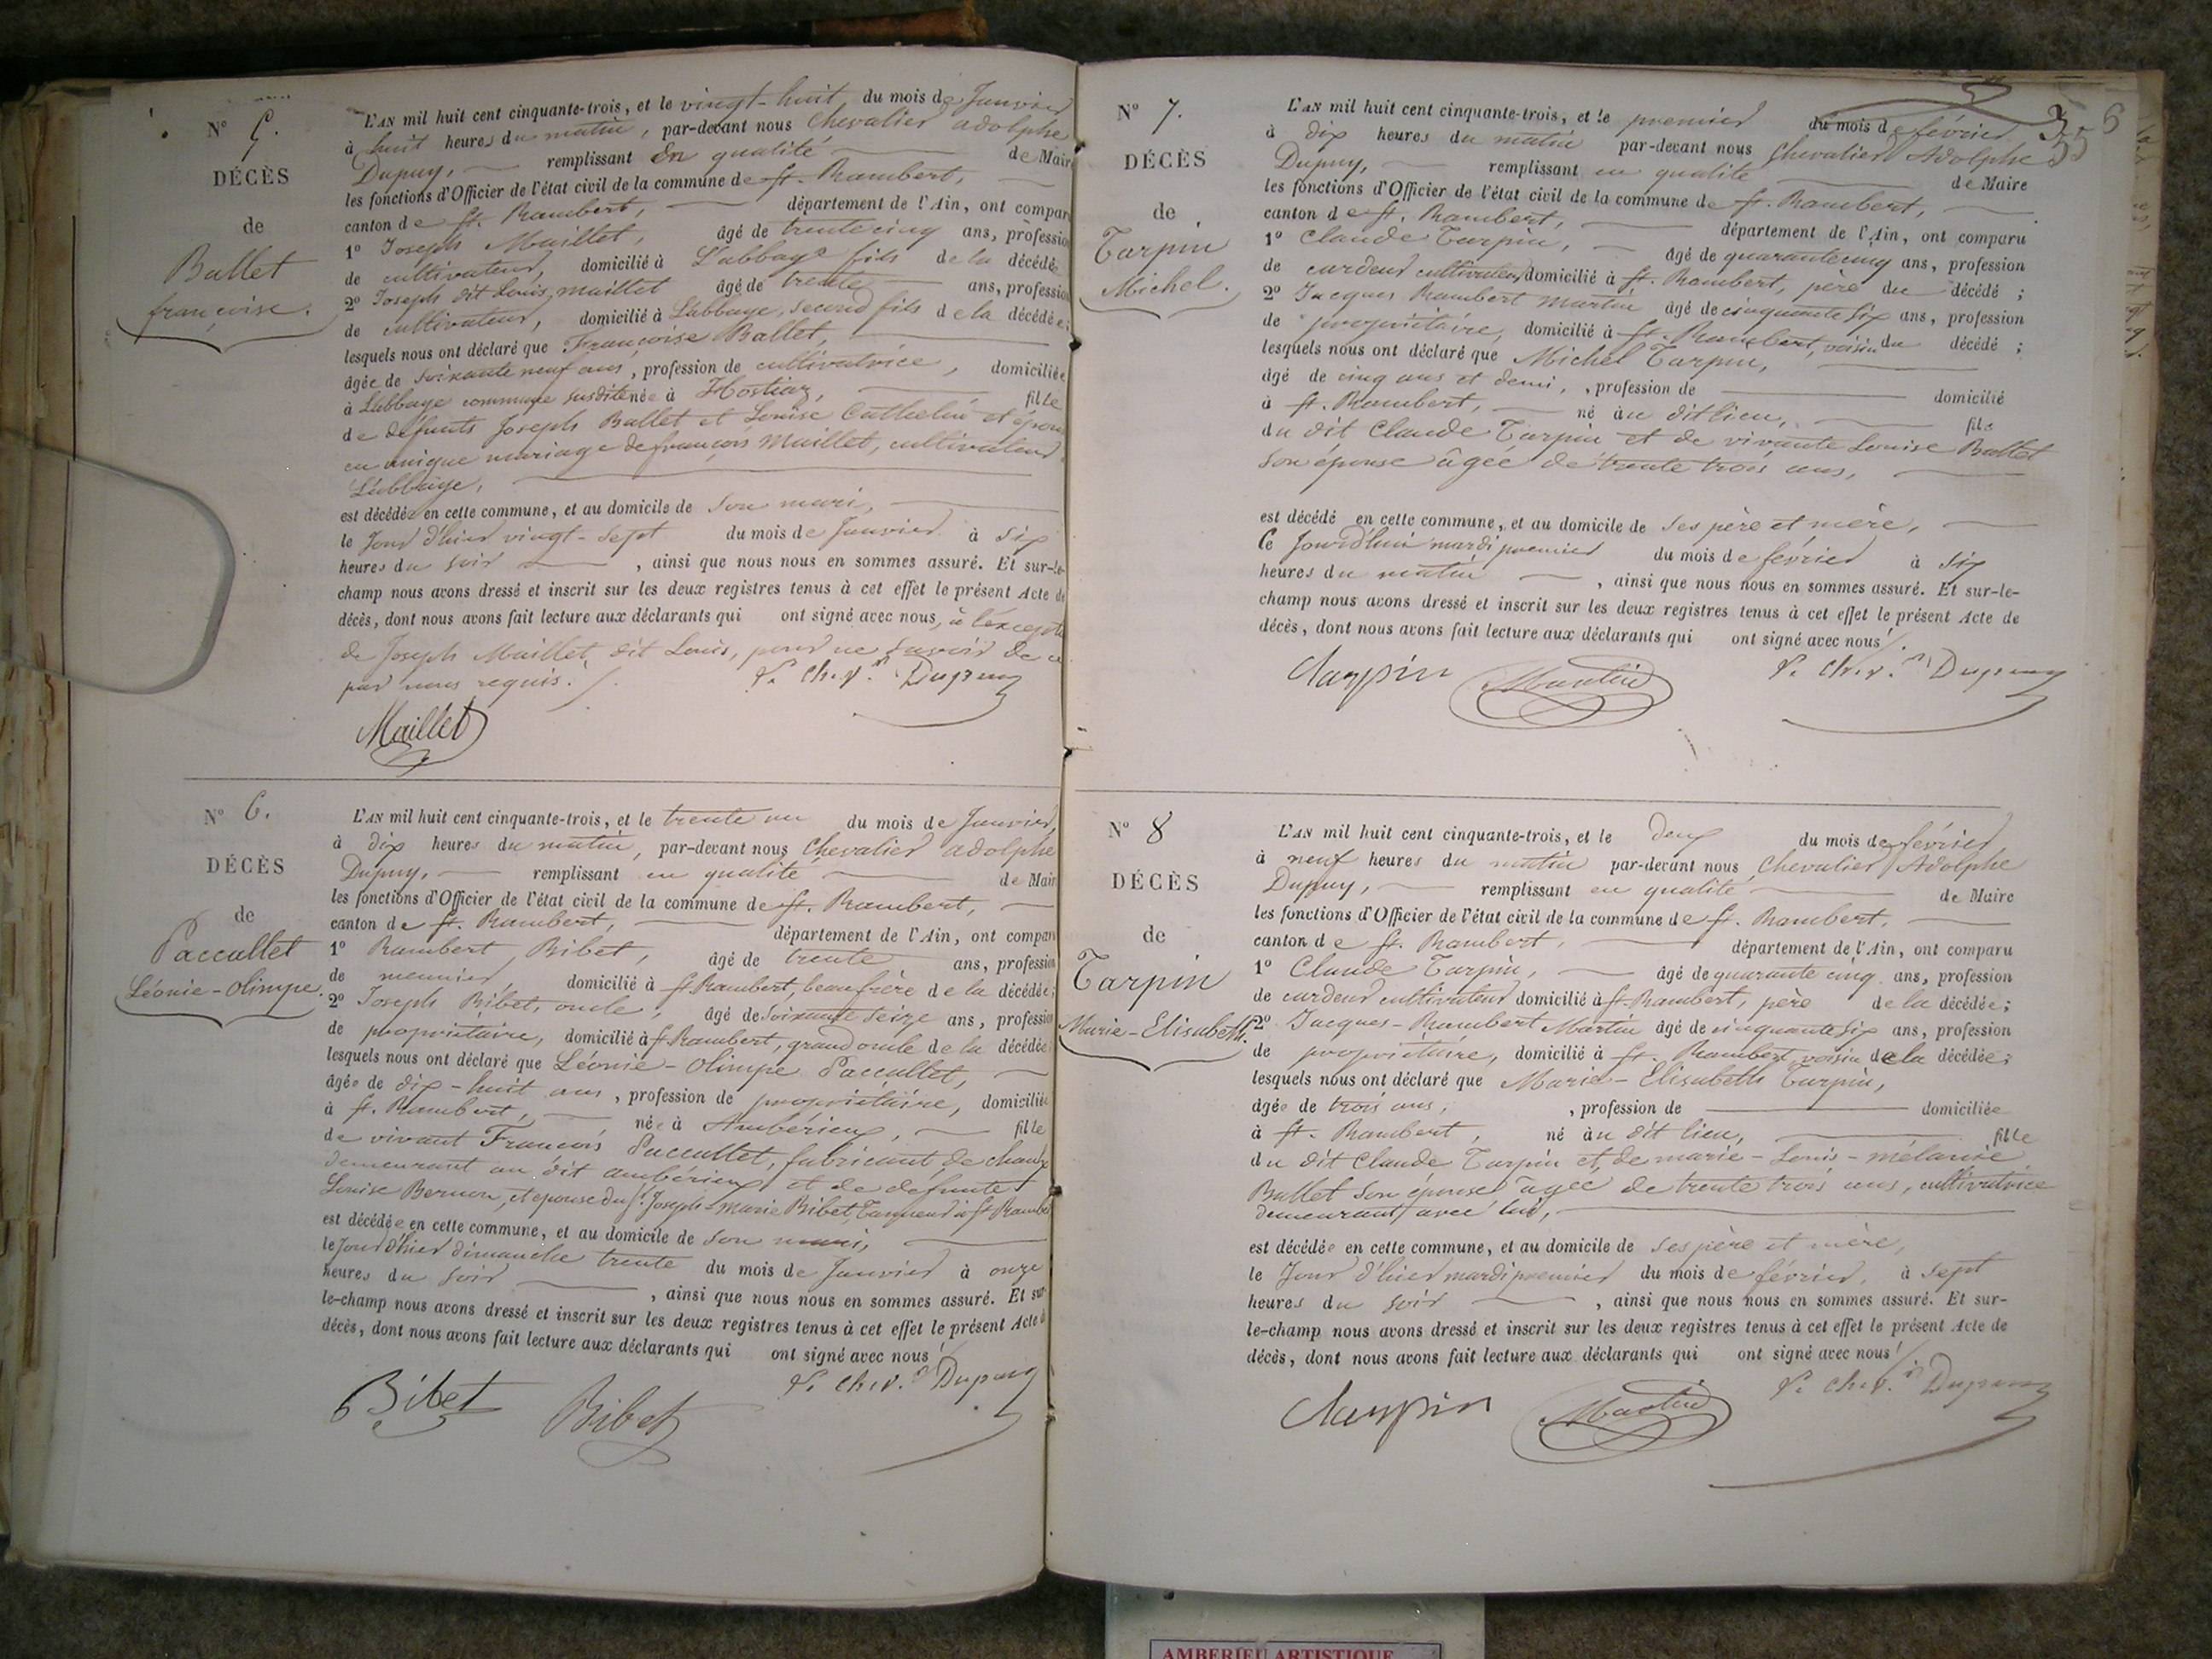 N° 5.
DÉCÈS
de
Ballet
françoise.
L'AN mil huit cent cinquante-trois, et le vingt-huit du mois de Janvier
à huit heures du matin, par-devant nous Chevalier adolphe
Dupuy, remplissant en qualité de Maire
les fonctions d'Officier de l'état civil de la commune de st. Rambert,
canton de st. Rambert, département de l'Ain, ont comparu
1° Joseph Maillet, âgé de trente cinq ans, profession
de cultivateur, domicilié à L'abbaye fils de la décédée
2° Joseph dit Louis maillet âgé de trente ans, profession
de cultivateur, domicilié à L'abbaye, second fils de la décédée;
lesquels nous ont déclaré que Françoise Ballet,
âgée de soixante neuf ans, profession de cultivatrice, domiciliée
à L'abbaye commune susdite née à Hostiaz, fille
de défunts Joseph Ballet et Louise Cathelin et épouse
en unique mariage de françois Maillet, cultivateur
L'abbaye,
est décédée en cette commune, et au domicile de son mari,
le Jour d'hier vingt-sept du mois de Janvier à six
heures du soir, ainsi que nous nous en sommes assuré. Et sur-le-
champ nous avons dressé et inscrit sur les deux registres tenus à cet effet le présent Acte de
décès, dont nous avons fait lecture aux déclarants qui ont signé avec nous, à l'excepto
de Joseph Maillet dit Louis, pour ne savoir de ce
par nous requis. /.
Maillet
Dupuy
N° 6.
DÉCÈS
de
Paccallet
Léonie-Olimpe.
L'AN mil huit cent cinquante-trois, et le trente un du mois de Janvier,
à dix heures du matin, par-devant nous Chevalier adolphe
Dupuy, remplissant en qualité de Mair
les fonctions d'Officier de l'état civil de la commune de st. Rambert,
canton de st. Rambert, département de l'Ain, ont comparu
1° Rambert Bibet, âgé de trente ans, profession
de meunier domicilié à st Rambert, beaufrère de la décédée;
2° Joseph Bibet, oncle, âgé de soixante seize ans, profession
de propriétaire, domicilié à st Rambert, grand oncle de la décédée
lesquels nous ont déclaré que Léonie-Olimpe Paccallet,
âgée de dix-huit ans, profession de propriétaire, domiciliée
à st. Rambert, née à Ambérieux, fille
de vivant François Paccallet, fabricant de chaux
demeurant au dit ambérieux et de defunte
Louise Bernon, et epouse du st. Joseph-Marie Bibet, Tanneur à st Rambt
est décédée en cette commune, et au domicile de son mari,
le Jour d'hier dimanche trente du mois de Janvier à onze
heures du soir, ainsi que nous nous en sommes assuré. Et sur
le-champ nous avons dressé et inscrit sur les deux registres tenus à cet effet le présent Acte d
décès, dont nous avons fait lecture aux déclarants qui ont signé avec nous /.
Bibet Bibet Dupuy
6
35
N° 7.
DÉCÈS
de
Tarpin
Michel.
L'AN mil huit cent cinquante-trois, et le premier du mois de février
à dix heures du matin par-devant nous Chevalier Adolphe
Dupuy, remplissant en qualité de Maire
les fonctions d'Officier de l'état civil de la commune de st. Rambert,
canton de st. Rambert, département de l'Ain, ont comparu
1° Claude Tarpin, âgé de quarante cinq ans, profession
de cardeur cultivateur, domicilié à st. Rambert, père du décédé;
2° Jacques Rambert Martin âgé de cinquante six ans, profession
de propriétaire, domicilié à st. Rambert, voisin du décédé;
lesquels nous ont déclaré que Michel Tarpin,
âgé de cinq ans et demi, profession de domicilié
à st. Rambert, né au dit lieu, fils
du dit Claude Tarpin et de vivante Louise Ballet
son épouse âgée de trente trois ans,
est décédé en cette commune, et au domicile de ses père et mère,
le Jourd'hui mardi premier du mois de février à six
heures du matin, ainsi que nous nous en sommes assuré. Et sur-le-
champ nous avons dressé et inscrit sur les deux registres tenus à cet effet le présent Acte de
décès, dont nous avons fait lecture aux déclarants qui ont signé avec nous /.
Ctarpin Martin Dupuy
N° 8
DÉCÈS
de
Tarpin
Marie-Elisabeth.
L'AN mil huit cent cinquante-trois, et le deux du mois de février
à neuf heures du matin par-devant nous Chevalier Adolphe
Dupuy, remplissant en qualité de Maire
les fonctions d'Officier de l'état civil de la commune de st. Rambert,
canton de st. Rambert, département de l'Ain, ont comparu
1° Claude Tarpin, âgé de quarante cinq ans, profession
de cardeur cultivateur domicilié à st. Rambert, père de la décédée;
2° Jacques-Rambert Martin âgé de cinquante six ans, profession
de propriétaire, domicilié à st. Rambert, voisin de la décédée;
lesquels nous ont déclaré que Marie-Elisabeth Tarpin,
âgée de trois ans, profession de domiciliée
à st. Rambert, né au dit lieu, fille
du dit Claude Tarpin et de marie-Louis-mélanie
Ballet son épouse agée de trente trois ans, cultivatrice
demeurant avec lui,
est décédée en cette commune, et au domicile de ses père et mère,
le Jour d'hier mardi premier du mois de février, à sept
heures du soir, ainsi que nous nous en sommes assuré. Et sur-
le-champ nous avons dressé et inscrit sur les deux registres tenus à cet effet le présent Acte de
décès, dont nous avons fait lecture aux déclarants qui ont signé avec nous /.
Ctarpin Martin Dupuy
AMBERIEU ARTISTIQUE